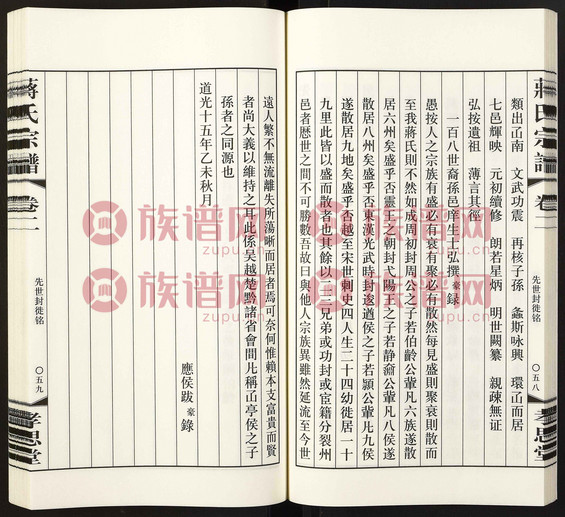 蔣氏宗譜
卷二
先世封徙铭
〇五八
孝思堂
類出函南　文武功震　再核子孫　螽斯咏興　環函而居
七邑輝映　元初續修　朗若星炳　明世闕纂　親疎無证
弘按遺祖　薄言其徑
一百八世裔孫邑庠生士弘撰 豪録
愚按人之宗族有盛必有衰有聚必有散然每見盛則聚衰則散而
至我蔣氏則不然如成周初封周公之子若伯齡公輩凡六族遂散
居六州矣盛乎否靈王之朝封弋陽王之子若静齋公輩凡八侯遂
散居八州矣盛乎否東漢光武時封逡遒侯之子若顥公輩凡九侯
遂散居九地矣盛乎否越至宋世刺史四人生二十四幼徙居一十
九里此皆以盛而散者也其餘以二三兄弟或功封或宦籍分裂州
邑者歷世之間不可勝數吾故曰與他人宗族異雖然延流至今世
遠人繁不無流離失所蕩晰而居者焉可奈何惟賴本支富貴而賢
者尚大義以維持之耳此係吴越楚黔諸省會間凡稱函亭侯之子
孫者之同源也
應侯跋 豪錄
道光十五年乙未秋月
蔣氏宗譜
卷二
先世封徙铭
〇五九
孝思堂
族谱网
zupu.cn